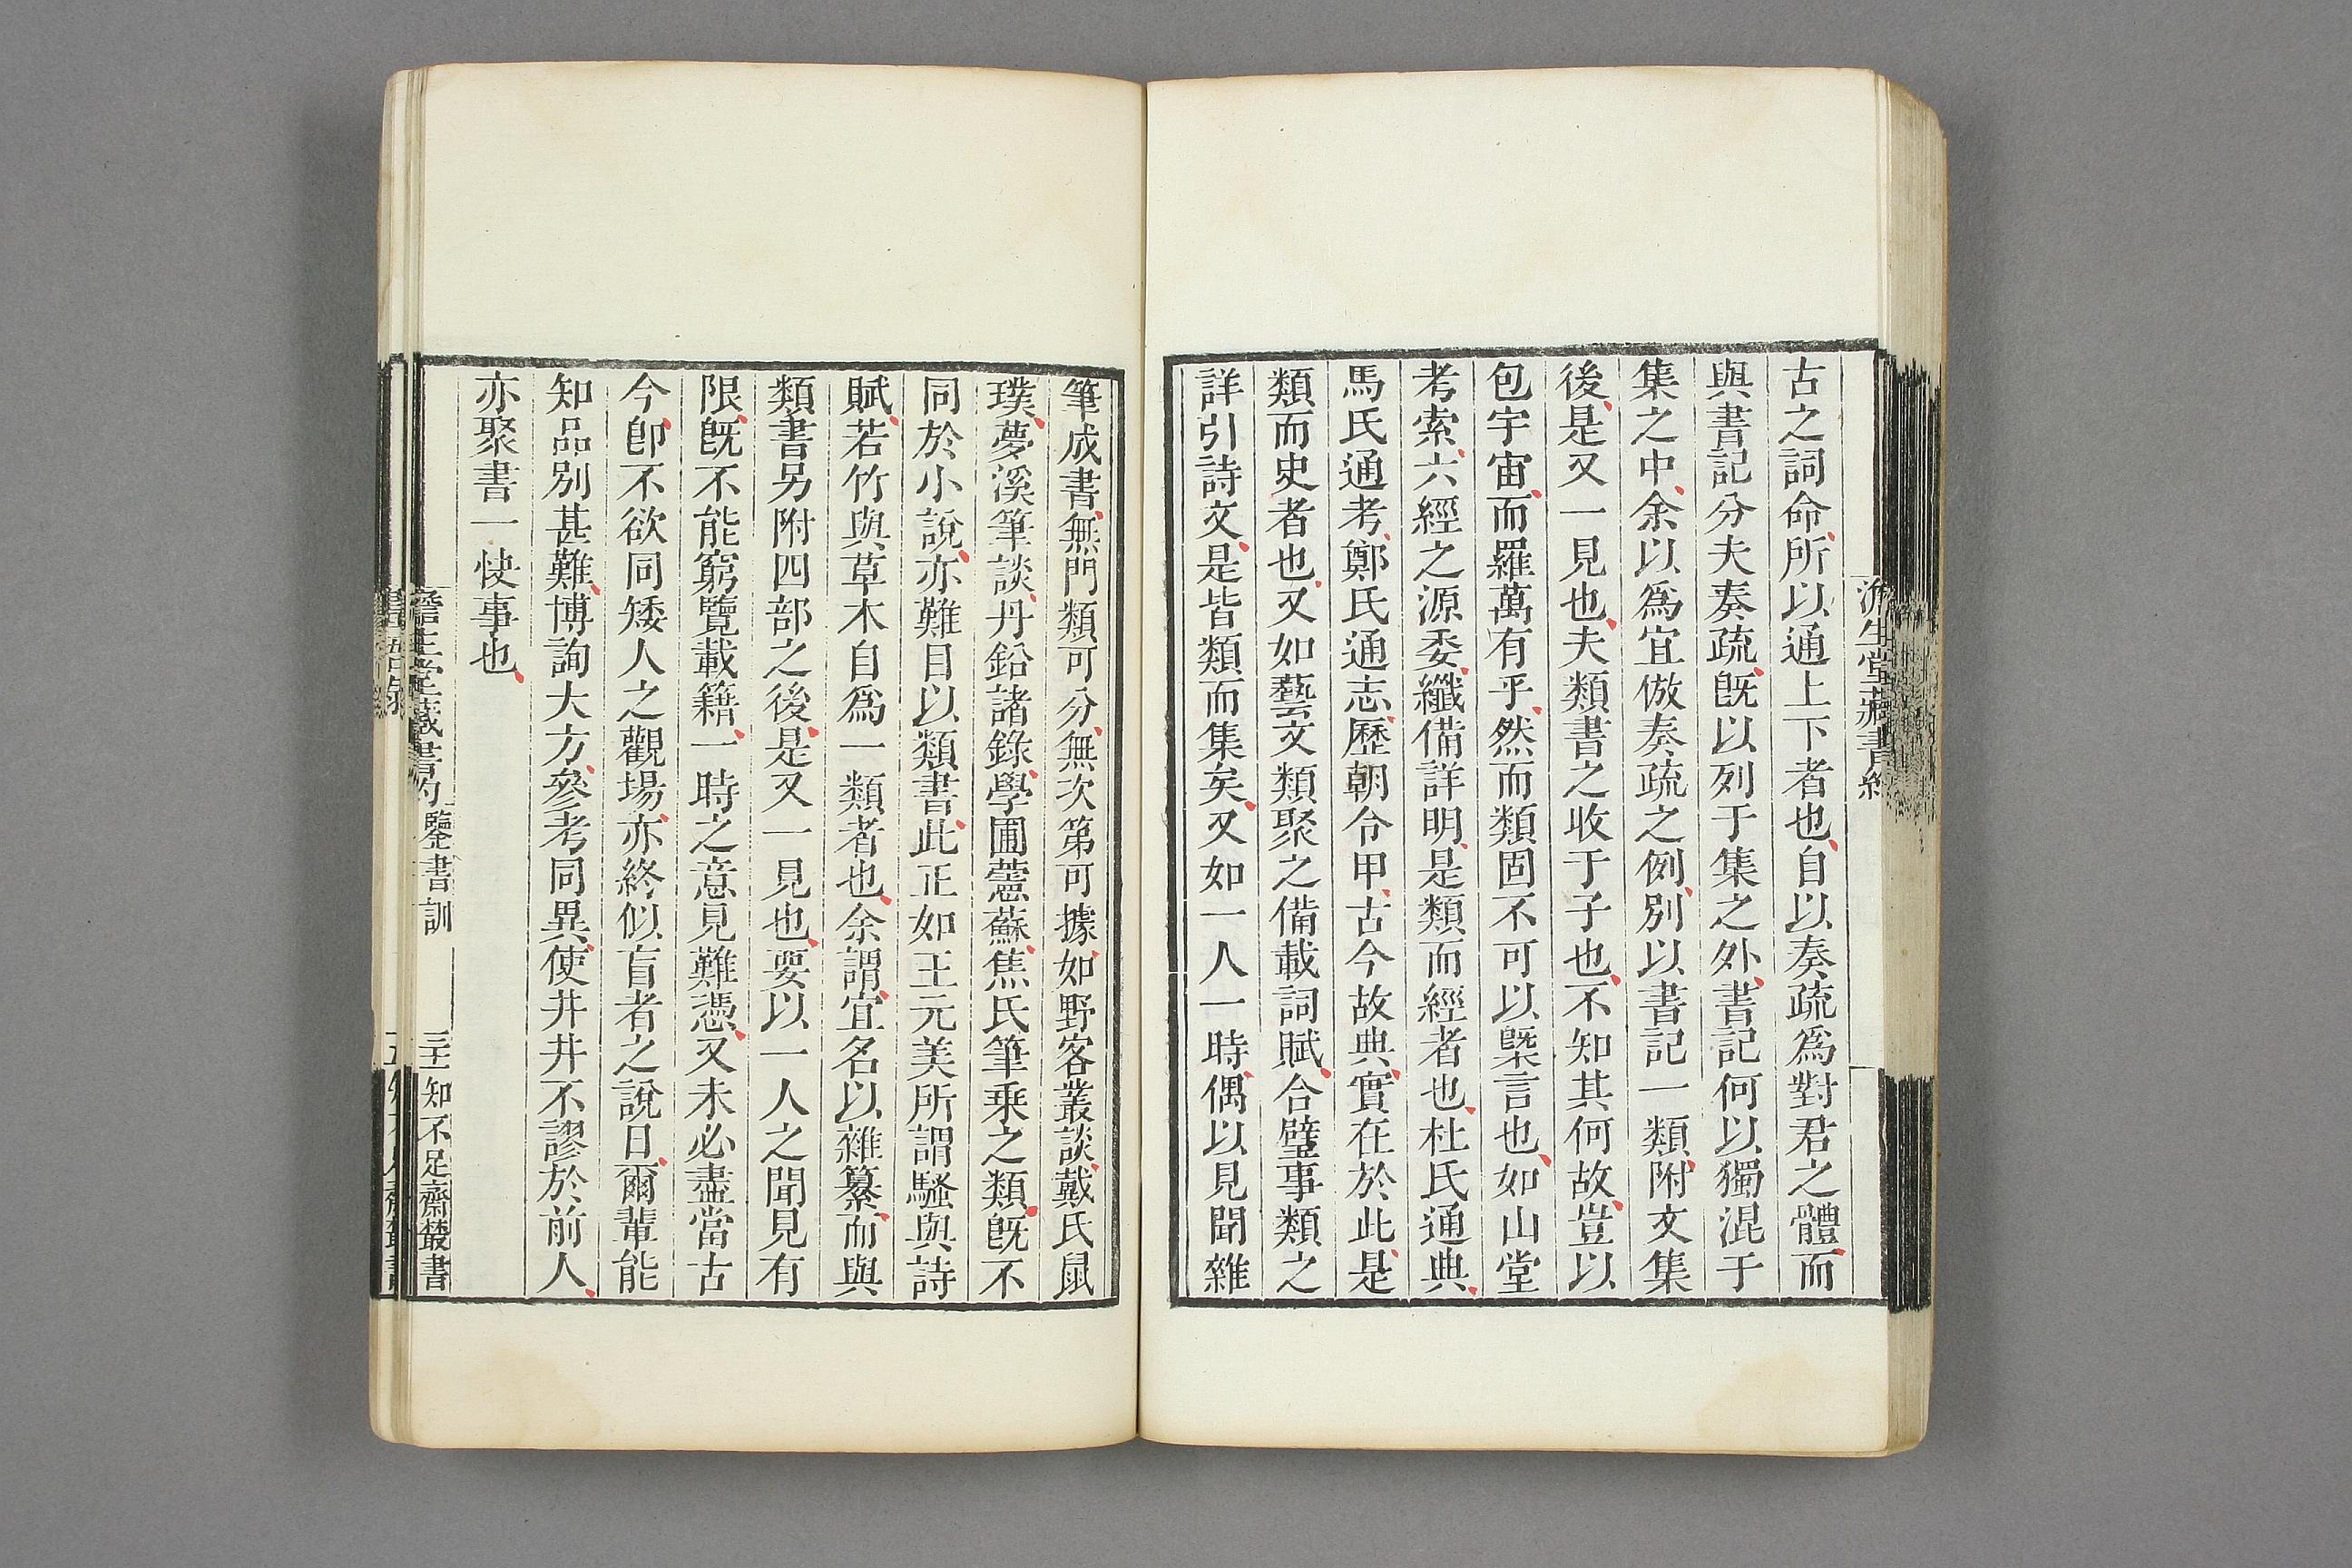 古之詞命所以通上下者也自以奏疏爲對君之體而
與書記分夫奏疏旣以列于集之外書記何以獨混于
集之中余以爲宜倣奏疏之例別以書記一類附文集
後是又一見也夫類書之收于子也不知其何故豈以
包宇宙而羅萬有乎然而類固不可以槩言也如山堂
考索六經之源委纖備詳明是類而經者也杜氏通典
馬氏通考鄭氏通志歷朝令甲古今故典實在於此是
類而史者也又如藝文類聚之備載詞賦合璧事類之
詳引詩文是皆類而集矣又如一人一時偶以見聞雜
筆成書無門類可分無次第可據如野客叢談戴氏鼠
璞夢溪筆談丹鉛諸錄學圃蘐蘇焦氏筆乘之類旣不
同於小說亦難目以類書此正如王元美所謂騷與詩
賦若竹與草木自爲一類者也余謂宜名以雜纂而與
類書另附四部之後是又一見也要以一人之聞見有
限旣不能窮覽載籍一時之意見難憑又未必盡當古
今卽不欲同矮人之觀場亦終似盲者之說日爾輩能
知品別甚難博詢大方參考同異使井井不謬於前人
亦聚書一快事也
澹生堂藏書約 鑒書訓 三十一 知不足齋叢書